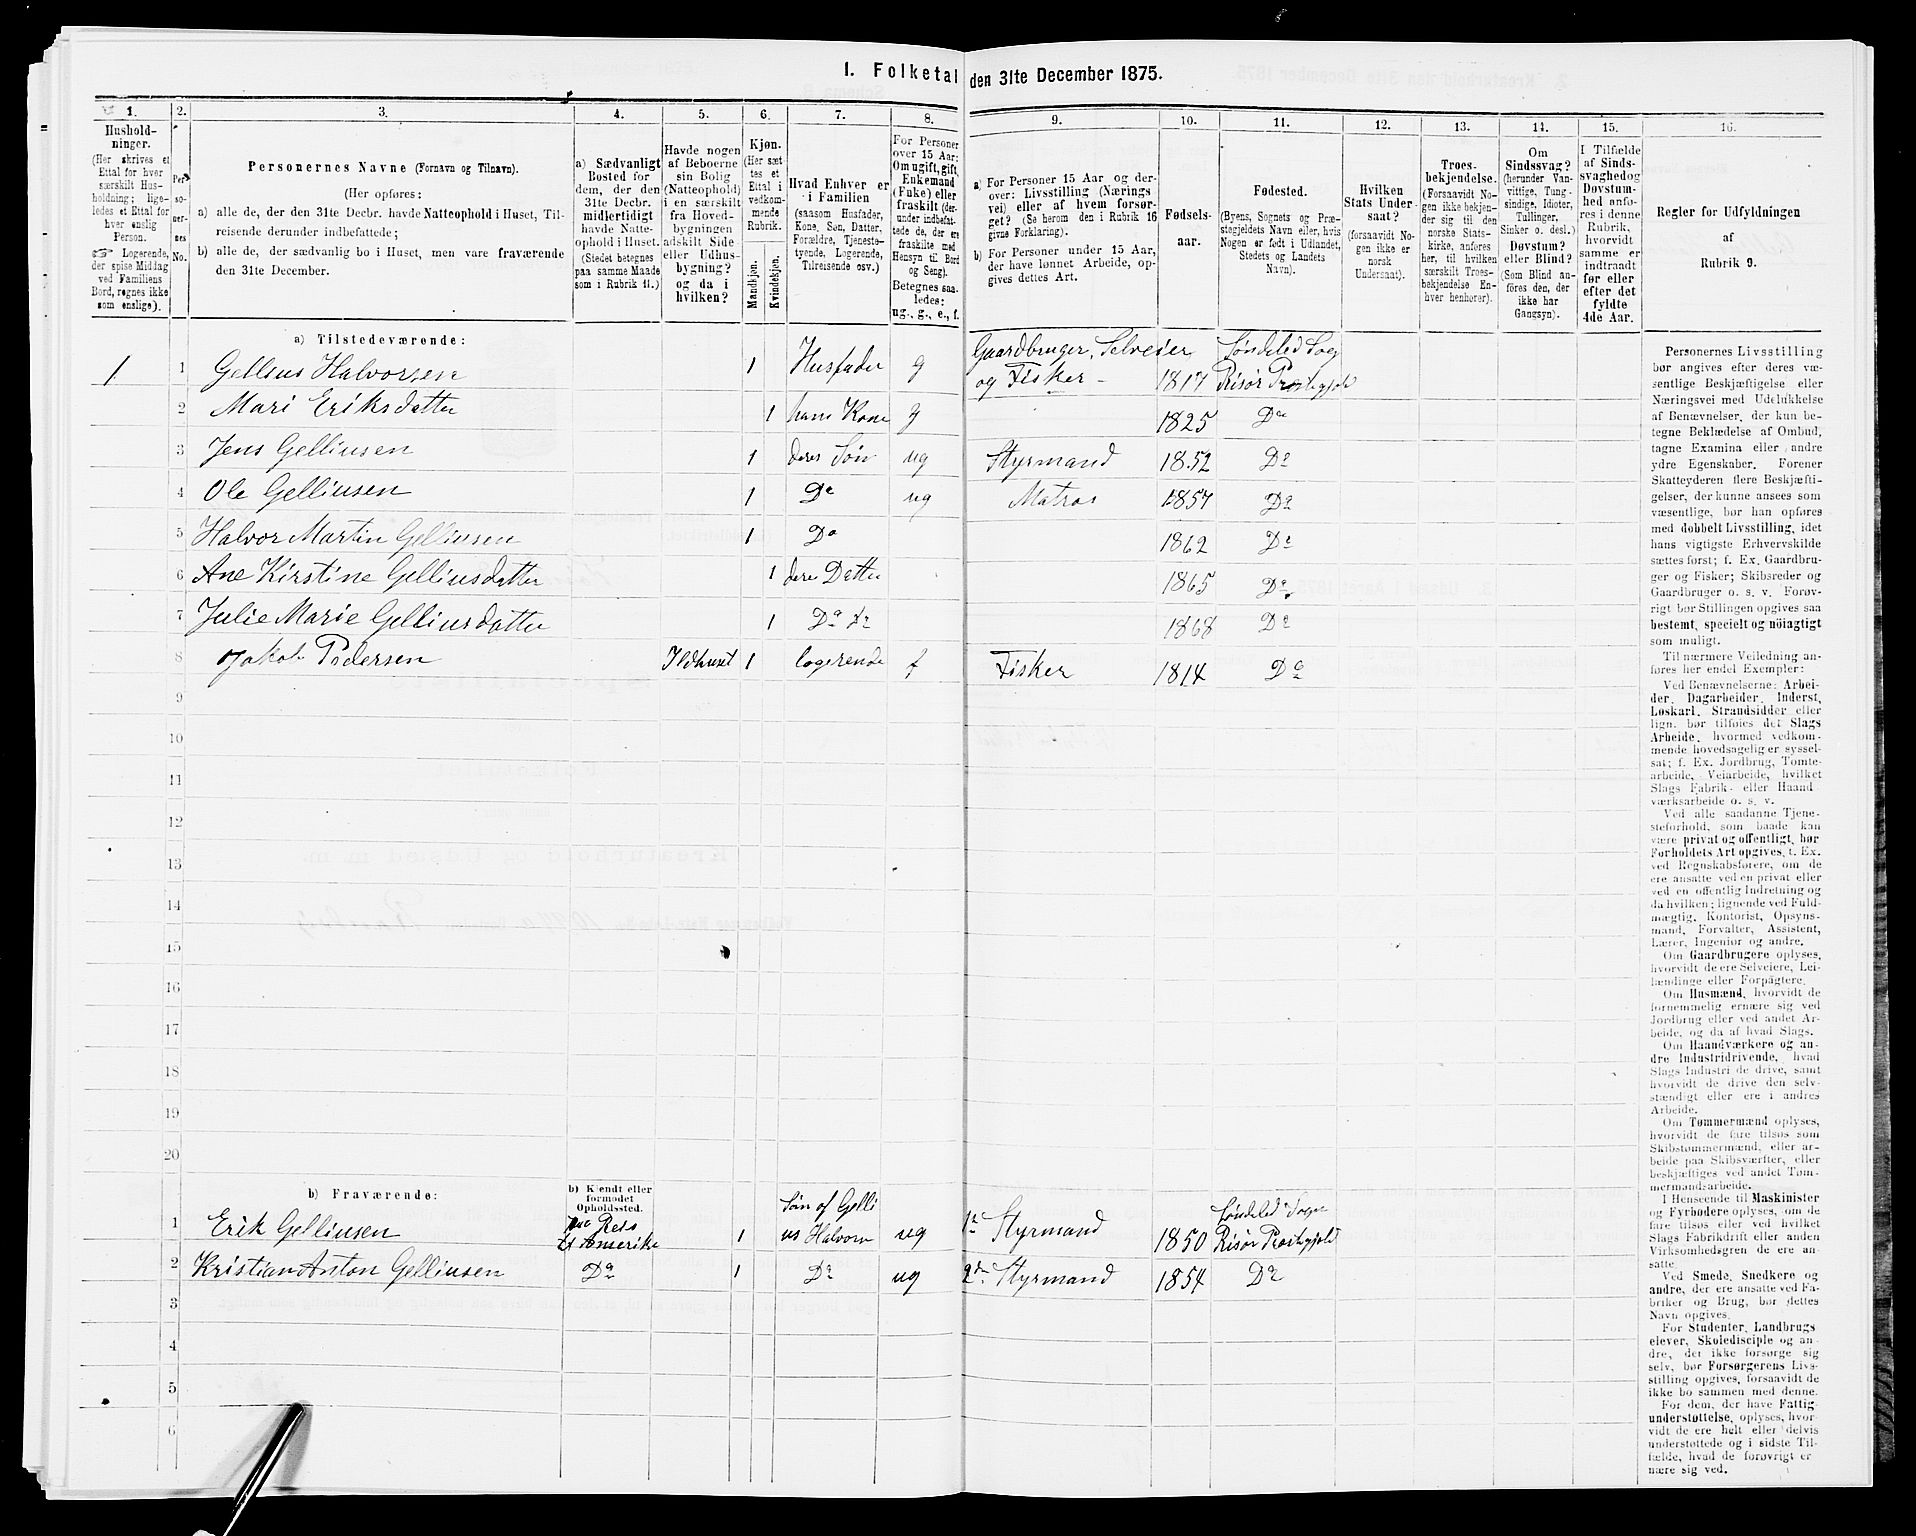 1. Folketal den 31te December 1875.
1. 2. 3. 4. 5. 6. 7. 8. 9. 10. 11. 12. 13. 14. 15. 16.
Hushold-
ninger.
(Her skrives et
Ettal for hver
særskilt Hus-
holdning; lige-
ledes et Ettal for
hver enslig
Person.
☞ Logerende,
der spise Middag
ved Familiens
Bord, regnes ikke
som enslige).
Per-
so-
ner-
nes
No.
Personernes Navne (Fornavn og Tilnavn).
(Her opføres:
a) alle de, der den 31te Decbr. havde Natteophold i Huset, Til-
reisende derunder indbefattede;
b) alle de, der sædvanlig bo i Huset, men vare fraværende
den 31te December.
a) Sædvanligt
Bosted for
dem, der den
31te Decbr.
midlertidigt
havde Natte-
ophold i Huset.
(Stedet betegnes
paa samme Maade
som i Rubrik 11.)
Havde nogen
af Beboerne
sin Bolig
(Natteophold)
i en særskilt
fra Hoved-
bygningen
adskilt Side-
eller Udhus-
bygning?
og da i
hvilken?
Kjøn.
(Her sæt-
tes et
Ettal i
vedkom-
mende
Rubrik.
Mandkjøn.
Kvindekjøn.
Hvad Enhver er
i Familien
(saasom Husfader,
Kone, Søn, Datter,
Forældre, Tjeneste-
tyende, Logerende,
Tilreisende osv.)
For Personer
over 15 Aar:
Om ugift, gift,
Enkemand
(Enke) eller
fraskilt (der-
under indbefat-
tede de, der ere
fraskilte med
Hensyn til Bord
og Seng).
Betegnes saa-
ledes:
ug., g., e., f.
a) For Personer 15 Aar og der-
over: Livsstilling (Nærings-
vei) eller af hvem forsør-
get? (Se herom den i Rubrik 16
givne Forklaring).
b) For Personer under 15 Aar,
der have lønnet Arbeide, op-
gives dettes Art.
Fødsels-
aar.
Fødested.
(Byens, Sognets og Præ-
stegjeldets Navn eller, hvis
Nogen er født i Udlandet,
Stedets og Landets
Navn).
Hvilken
Stats Under-
saat?
(forsaavidt No-
gen ikke er
norsk
Undersaat).
Troes-
bekjendelse.
(Forsaavidt No-
gen ikke bekjen-
der sig til den
norske Stats-
kirke, anføres
her, til hvilken
særskilt Troes-
bekjendelse En-
hver henhører).
Om
Sindssvag?
(herunder Van-
vittige, Tung-
sindige, Idioter,
Tullinger,
Sinker o. desl.)
Døvstum?
eller Blind?
(Som Blind an-
føres den, der
ikke har
Gangsyn).
I Tilfælde
af Sinds-
svaghed og
Døvstum-
hed anfø-
res i denne
Rubrik,
hvorvidt
samme er
indtraadt
før eller
efter det
fyldte
4de Aar.
Regler for Udfyldningen
af
Rubrik 9.
a) Tilstedeværende:
1 1 Gellius Halvorsen 1 Husfader g Gaardbruger, Selveier og Fisker - 1817 Søndeled Sogn Risør Præstegjeld
2 Mari Eriksdatter 1 hans Kone g 1825 Do
3 Jens Gelliusen 1 deres Søn ug Styrmand 1852 Do
4 Ole Gelliusen 1 Do ug Matros 1857 Do
5 Halvor Martin Gelliusen 1 Do 1862 Do
6 Ane Kirstine Gelliusdatter 1 deres Datter 1865 Do
7 Julie Marie Gelliusdatter 1 Do Do 1868 Do
8 Jakob Pedersen Ildhuset 1 logerende f Fisker 1814 Do
9
10
11
12
13
14
15
16
17
18
19
20
b) Fraværende:
b) Kjendt eller
formodet
Opholdssted.
1 Erik Gelliusen paa Reis til Amerika 1 Søn af Gellius Halvorsn ug 1ste Styrmand 1850 Søndeled Sogn Risør Præstegjeld
2 Kristian Anton Gelliusen Do 1 Do ug 2den Styrmand 1854 Do
3
4
5
6
Personernes Livsstilling
bør angives efter deres væ-
sentlige Beskjæftigelse eller
Næringsvei med Udelukkelse
af Benævnelser, der kun be-
tegne Beklædelse af Ombud,
tagne Examina eller andre
ydre Egenskaber. Forener
Skatteyderen flere Beskjæfti-
gelser, der kunne ansees som
væsentlige, bør han opføres
med dobbelt Livsstilling, idet
hans vigtigste Erhvervskilde
sættes først; f. Ex. Gaardbru-
ger og Fisker; Skibsreder og
Gaardbruger o. s. v. Forøv-
rigt bør Stillingen opgives saa
bestemt, specielt og nøiagtigt
som muligt.
Til nærmere Veiledning an-
føres her endel Exempler:
Ved Benævnelserne: Arbei-
der, Dagarbeider, Inderst,
Løskarl, Strandsidder eller
lign. bør tilføies det Slags
Arbeide, hvormed vedkom-
mende hovedsagelig er syssel-
sat; f. Ex. Jordbrug, Tomte-
arbeide, Veiarbeide, hvilket
Slags Fabrik- eller Haand-
værksarbeide o. s. v.
Ved alle saadanne Tjene-
steforhold, som baade kan
være privat og offentligt, bør
Forholdets Art opgives, t. Ex.
ved Regnskabsførere, om de
ere ansatte ved en privat eller
ved en offentlig Indretning og
da hvilken; lignende ved Fuld-
mægtig, Kontorist, Opsyns-
mand, Forvalter, Assistent,
Lærer, Ingeniør og andre.
Om Gaardbrugere oplyses,
hvorvidt de ere Selveiere, Lei-
lændinge eller Forpagtere.
Om Husmænd, hvorvidt de
fornemmelig ernære sig ved
Jordbrug eller ved andet Ar-
beide, og da af hvad Slags.
Om Haandværkere og an-
dre Industridrivende, hvad
Slags Industri de drive, samt
hvorvidt de drive den selv-
stændigt eller ere i andres
Arbeide.
Om Tømmermænd oplyses,
hvorvidt de fare tilsøs som
Skibstømmermænd, eller ar-
beide paa Skibsværfter, eller
beskjæftiges ved andet Tøm-
mermandsarbeide.
I Henseende til Maskinister
og Fyrbødere oplyses, om de
fare tilsøs eller ved hvilket
Fabrikdrift eller anden
Virksomhedsgren de ere an-
satte.
Ved Smede, Snedkere og
andre, der ere ansatte ved Fa-
briker og Brug, bør dettes
Navn opgives.
For Studenter, Landbrugs-
elever, Skoledisciple og an-
dre, der ikke forsørge sig
selv, bør Forsørgerens Livs-
stilling opgives, forsaavidt de
ikke bo sammen med denne.
For dem, der have Fattig-
understøttelse, oplyses, hvor-
vidt de ere helt eller delvis
understøttede og i sidste Til-
fælde, hvad de forøvrigt er-
nære sig ved.